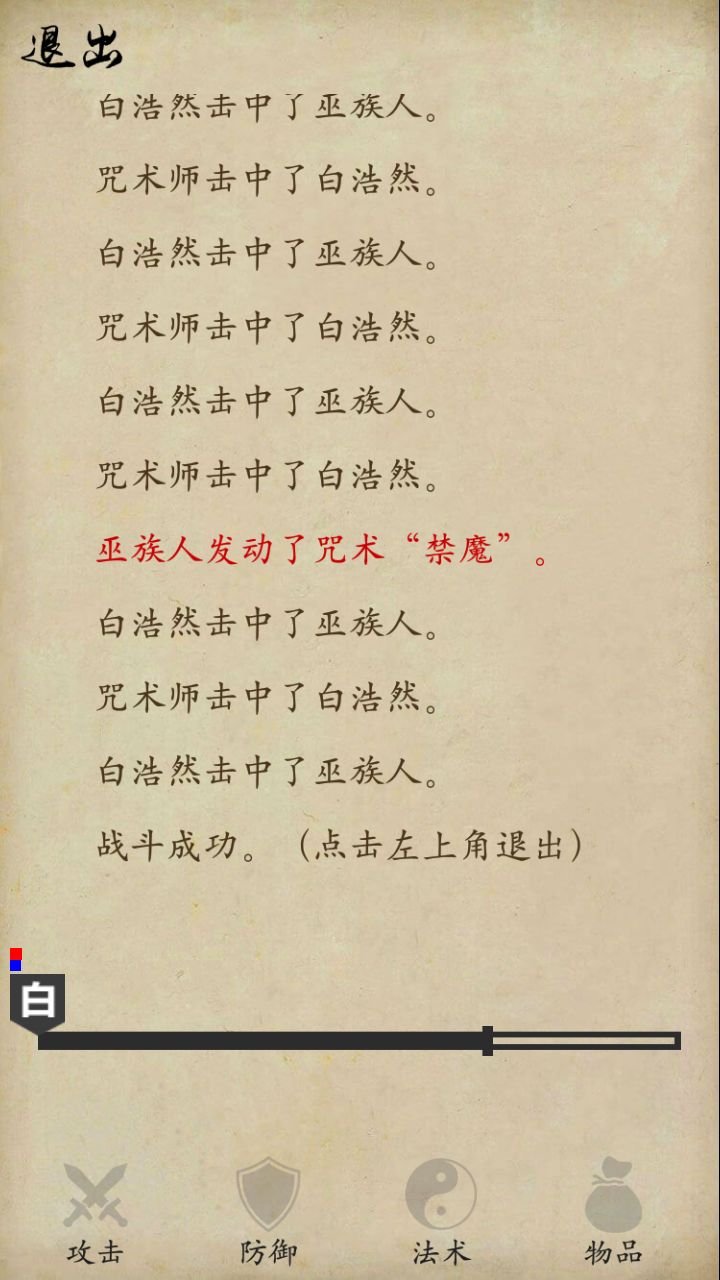 退出
白浩然击中了巫族人。
咒术师击中了白浩然。
白浩然击中了巫族人。
咒术师击中了白浩然。
白浩然击中了巫族人。
咒术师击中了白浩然。
巫族人发动了咒术“禁魔”。
白浩然击中了巫族人。
咒术师击中了白浩然。
白浩然击中了巫族人。
战斗成功。（点击左上角退出）
白
攻击 防御 法术 物品